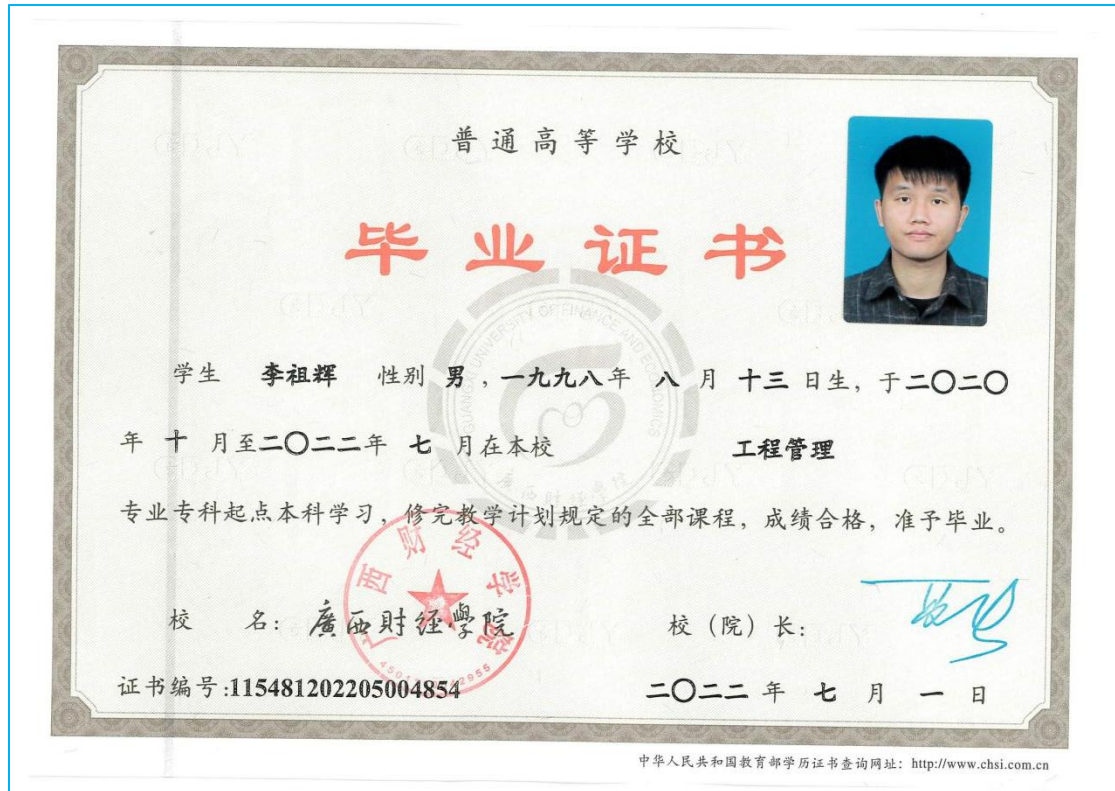 普通高等学校
毕业证书
GUANGXI UNIVERSITY OF FINANCE AND ECONOMICS
学生 李祖辉 性别 男，一九九八年 八 月 十三 日生，于二〇二〇
年 十 月至二〇二二年 七 月在本校 工程管理
广西财经学院
专业专科起点本科学习，修完教学计划规定的全部课程，成绩合格，准予毕业。
广西财经学院
校 名：廣西財经學院 校（院）长：
证书编号:115481202205004854 二〇二二 年 七 月 一 日
中华人民共和国教育部学历证书查询网址：http://www.chsi.com.cn